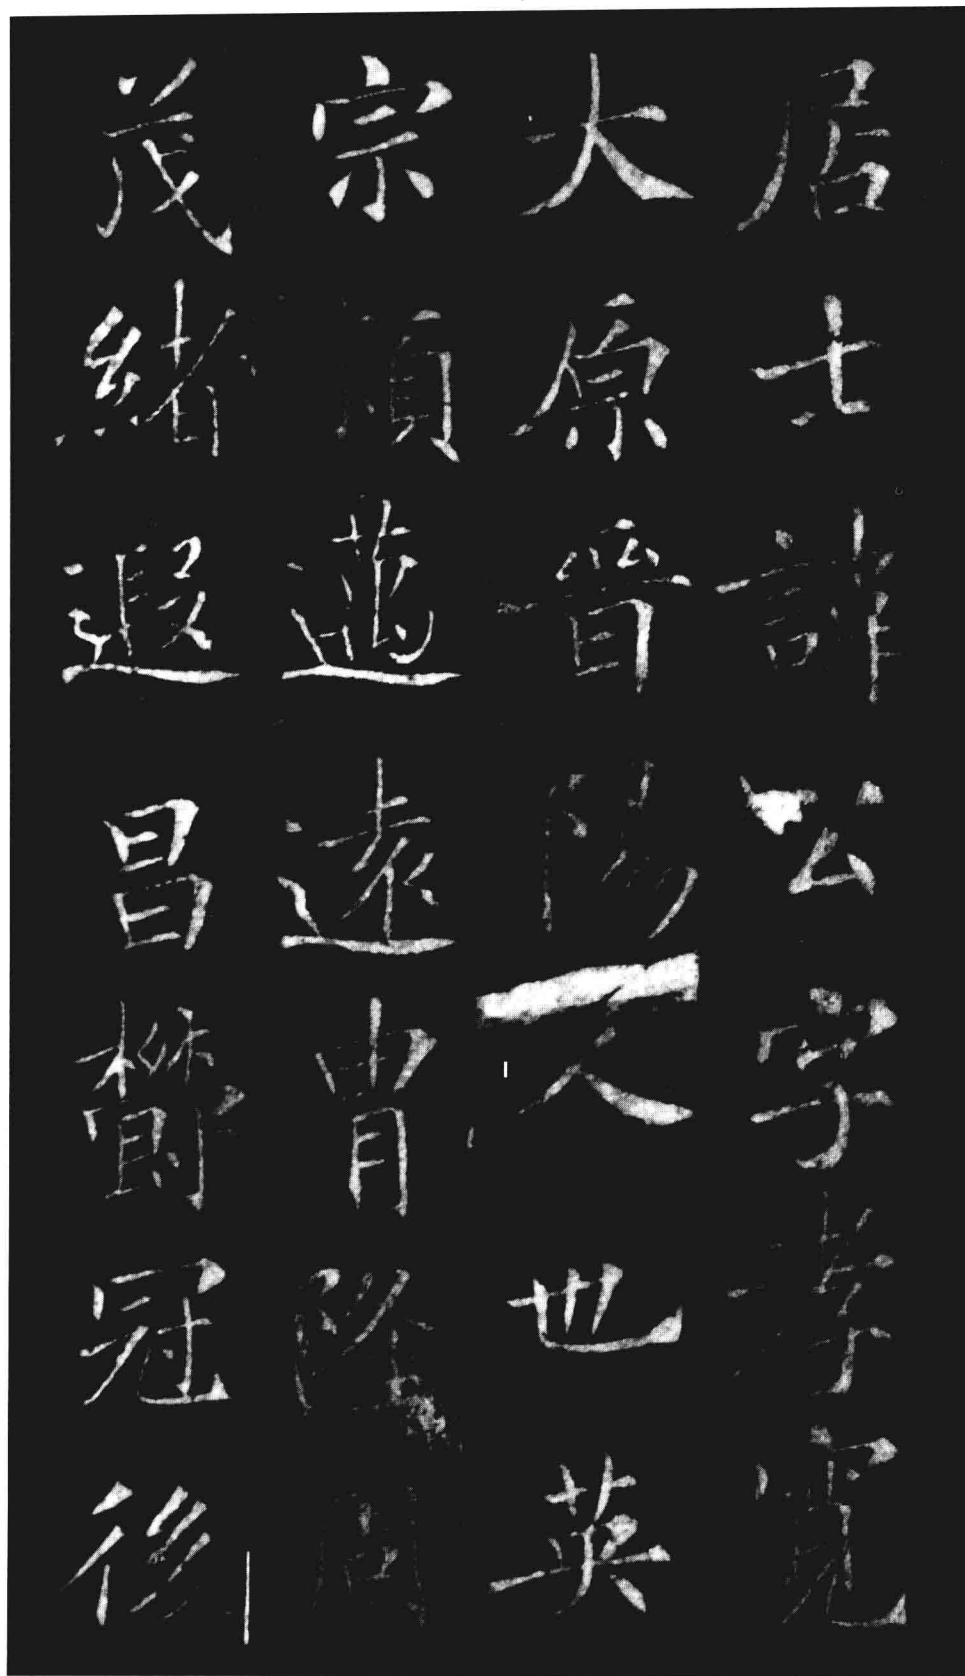 居士諱公字孝寬
大原晉陽人也英
宗穎邁遠冑隆周
茂緒遐昌欝冠後